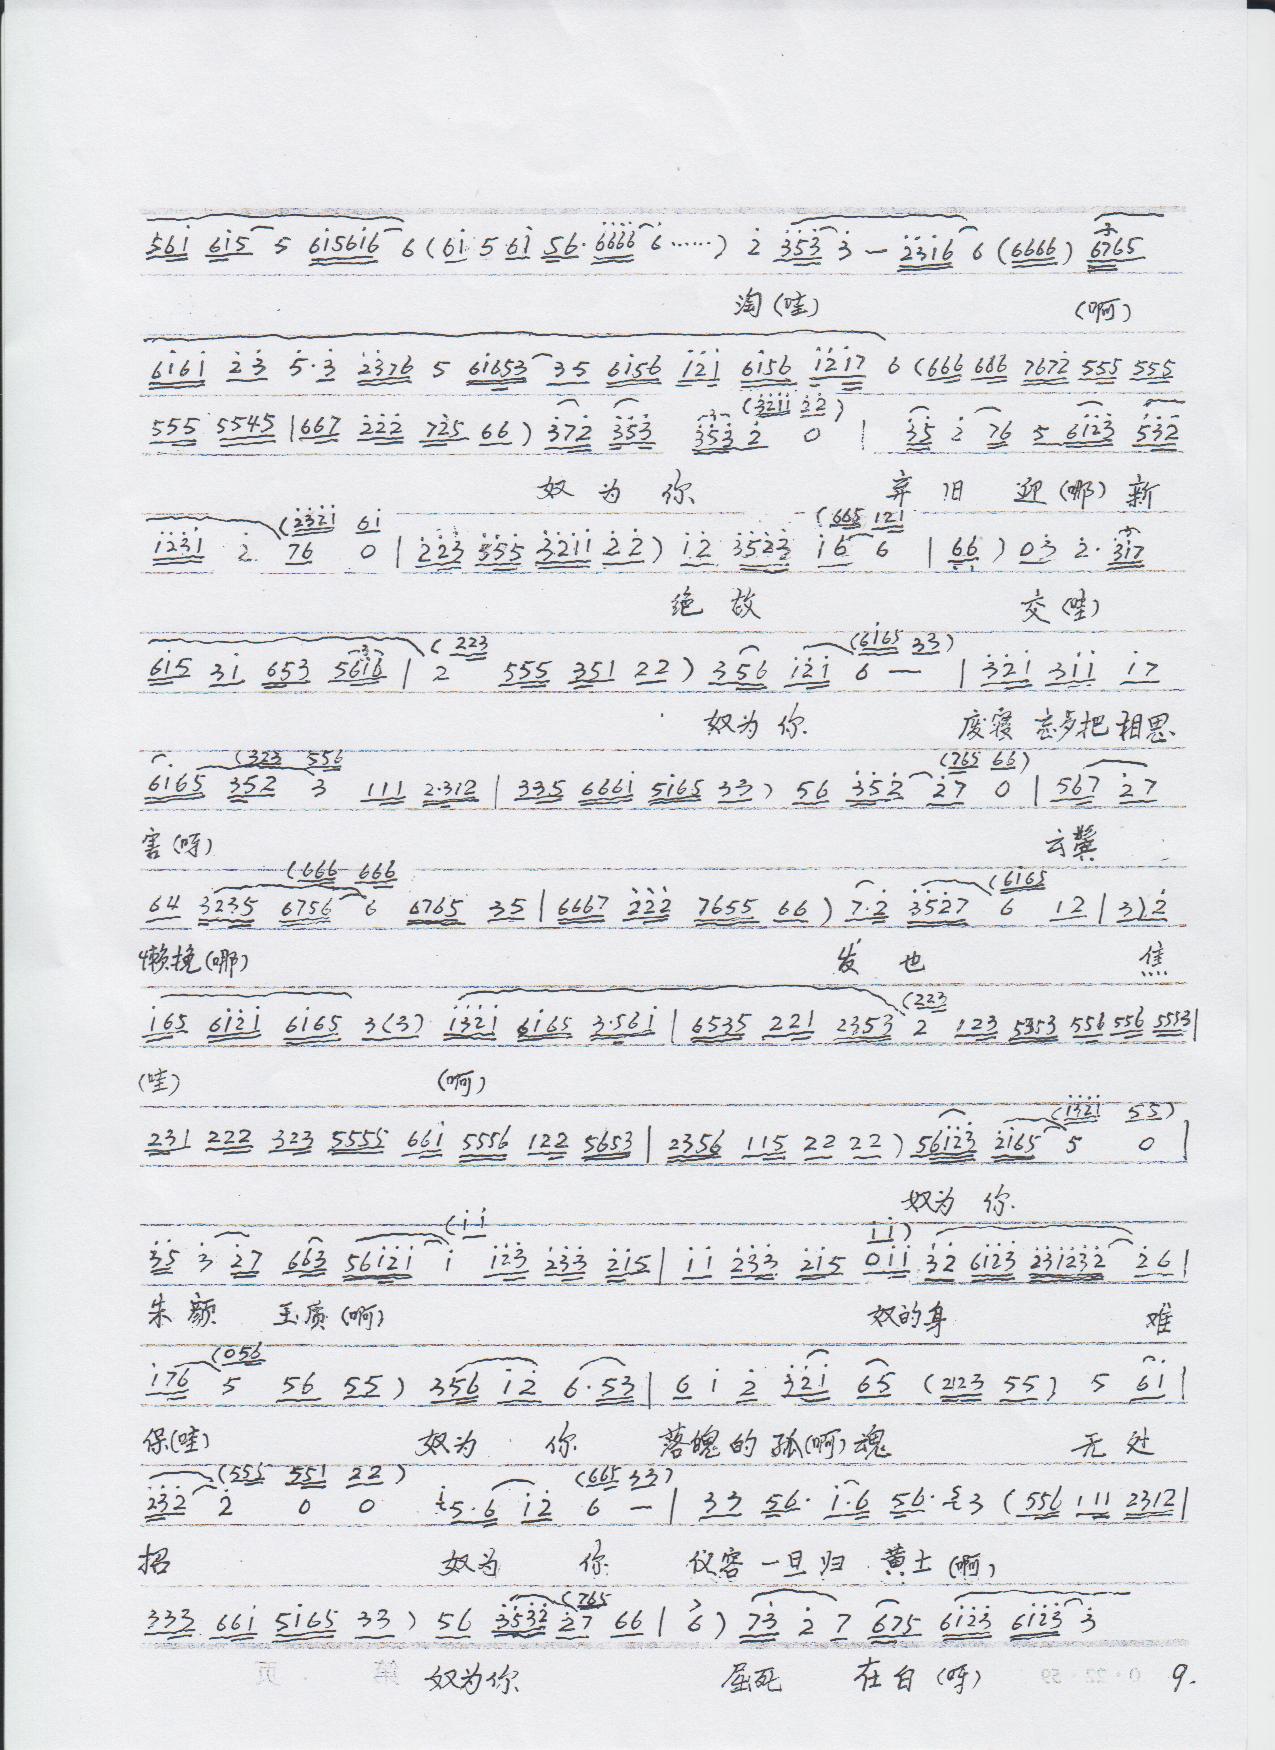 561̇ 61̇5 5 61̇561̇6 6 (61̇ 5 61̇ 56· 6̇6̇6̇6̇ 6̇ ……) 2̇ 3̇5̇3̇ 3̇ — 2̇3̇1̇6 6 (6666) 6765
淘(哇) (啊)
61̇61̇ 2̇3̇ 5̇·3̇ 2̇3̇76 5 61̇653 35 61̇56 1̇2̇1̇ 61̇56 1̇2̇1̇7 6 (666 686 7672̇ 555 555
555 5545 | 667 2̇2̇2̇ 72̇5 66) 3̇72̇ 3̇5̇3̇ 3̇5̇3̇ 2̇ (3̇2̇1̇1̇ 2̇2̇) 0 | 3̇5 2̇ 76 5 61̇2̇3̇ 5̇3̇2̇
奴为你 弃旧迎(哪)新
1̇2̇3̇1̇ 2̇ 76 (2̇3̇2̇1̇ 61̇ 0 | 2̇2̇3̇ 3̇5̇5̇ 3̇2̇1̇1̇ 2̇2̇) 1̇2̇ 3̇5̇2̇3̇ 1̇6 6 (665 121 | 66) 03̇ 2̇· 3̇1̇7
绝故 交(哇)
61̇5 31̇ 653 561̇6 | 2 (223 555 351 22) 356 1̇2̇1̇ 6 — (61̇65 33) | 3̇2̇1̇ 3̇1̇1̇ 1̇7
奴为你 废寝忘
把相思
6165 352 3 (323 556 111 2·312 | 335 6661̇ 51̇65 33) 56 3̇5̇2̇ 2̇7 0 (765 66) | 567 2̇7
害(呀) 云鬓
64 3235 6756 6 (666 666 6765 35 | 6667 2̇2̇2̇ 7655 66) 7·2̇ 3̇5̇2̇7 6 (61̇65 12 | 3) 2̇
懒挽(哪) 发也 焦
1̇65 61̇2̇1̇ 61̇65 3(3) 1̇3̇2̇1̇ 61̇65 3·561̇ | 6535 221 2353 2 (223 123 5353 556 556 5553 |
(哇) (啊)
231 222 323 5555 661̇ 5556 122 5653 | 2356 115 22 22) 561̇2̇3̇ 2̇1̇65 5 (1̇3̇2̇1̇ 55) 0 |
奴为你
3̇5 3̇ 2̇7 663̇ 561̇2̇1̇ 1̇ (1̇1̇ 1̇2̇3̇ 2̇3̇3̇ 2̇1̇5 | 1̇1̇ 2̇3̇3̇ 2̇1̇5 1̇1̇) 01̇1̇ 3̇2̇ 61̇2̇3̇ 2̇3̇1̇2̇3̇2̇ 2̇6 |
朱颜 玉质(啊) 奴的身 难
1̇76 5 (056 56 55) 356 1̇2̇ 6·53 | 6 1̇ 2̇ 3̇2̇1̇ 65 (2123 55) 5 61̇ |
保(哇) 奴为你 落魄的孤(啊)魂 无处
2̇3̇2̇ 2̇ (555 551 22) 0 0 5·6 1̇2̇ 6 — (665 33) | 33 56· 1̇·6 56· 3 (556 111 2312 |
招 奴为你 仪容一旦归黄土(啊)
333 661̇ 51̇65 33) 56 3̇5̇3̇2̇ 2̇7 (765 66 | 6) 73̇ 2̇ 7 675 61̇2̇3̇ 61̇2̇3̇ 3̇
奴为你 屈死 在自(呀) 9.
第 页
0·22·59